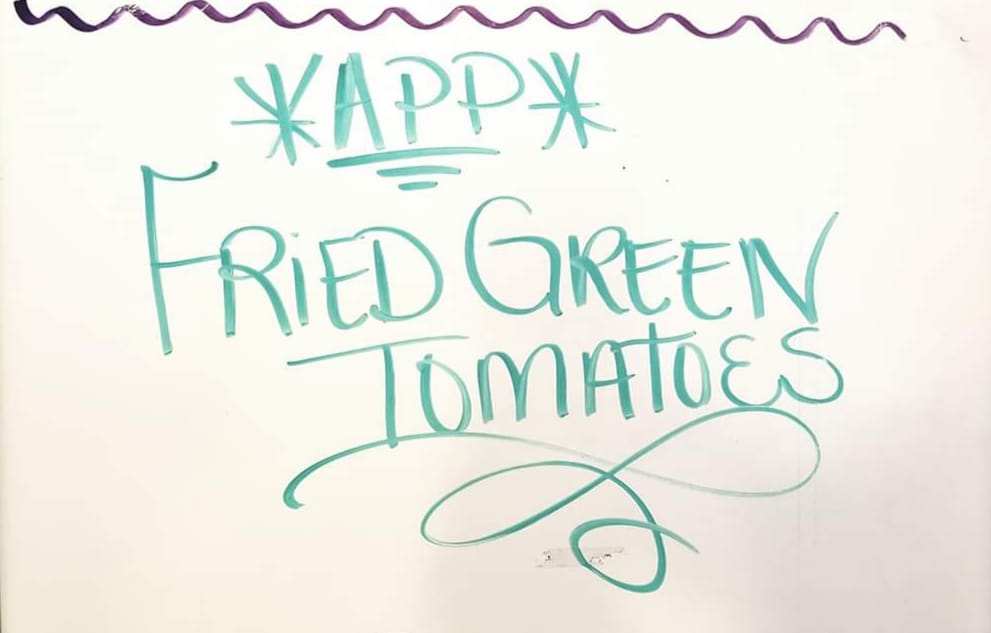 *APP*
FRiED GREEN
TOMATOES